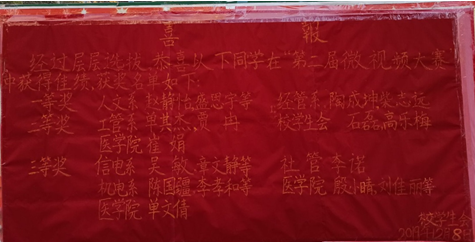 喜 报
经过层层选拔,恭喜以下同学在“第二届微视频大赛”
中获得佳绩,获奖名单如下:
一等奖 人文系 赵静怡,盛思宇等 经管系 陶成坤,柴志远
二等奖 工管系 单其杰,贾冉 校学生会 石磊,高乐梅
医学院 崔娟
三等奖 信电系 吴敏,章文静等 社管 李诺
机电系 陈国疆,李孝和等 医学院 殷小晴,刘佳丽等
医学院 单文倩
校学生会